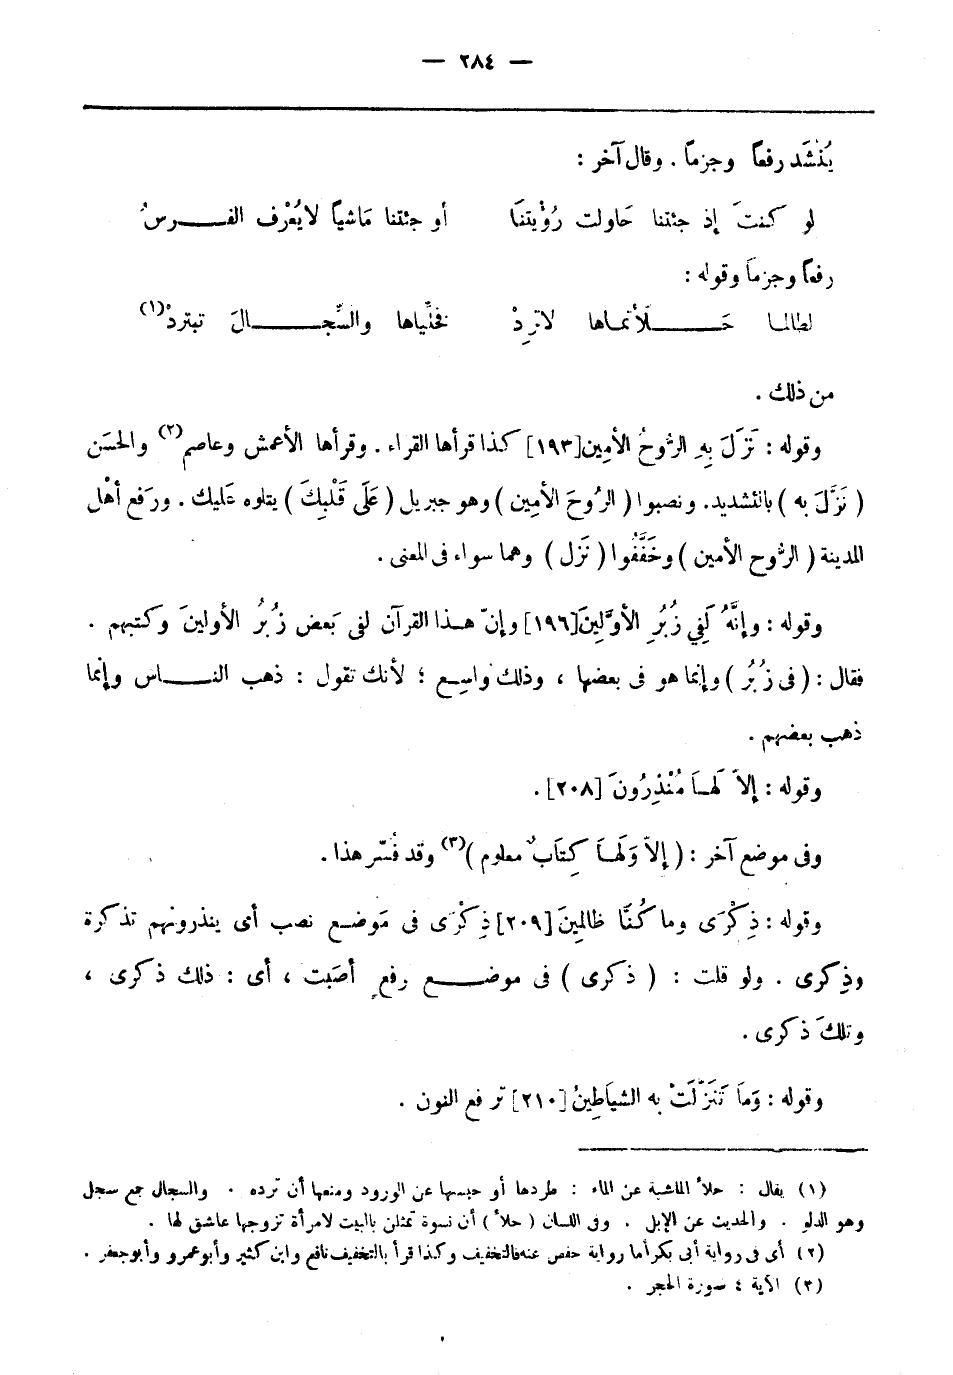 — ٢٨٤ —
يُنْشَد رفعاً وجزماً . وقال آخر :
لو كنتَ إذ جئتنا حَاولت رُؤْيتنَا أو جئتنا مَاشياً لا يُعْرف الفرسُ
رفعاً وجزماً وقوله :
لطالما حَلّأتماها لا تَرِدْ فخلِّياها والسِّجالَ تبتردْ(١)
من ذلك .
وقوله : نَزَلَ بِهِ الرُّوحُ الأمِين[١٩٣] كذا قرأها القراء . وقرأها الأعمش وعاصم(٢) والحَسَن
( نَزَّلَ به ) بالتشديد. ونصبوا ( الرُوحَ الأمِين ) وهو جبريل ( عَلَى قَلْبِكَ ) يتلوه عَليك . ورَفع أهْل
المدينة ( الرُّوح الأمين ) وخَفَّفُوا ( نَزل ) وهما سواء فى المعنى .
وقوله : وإنَّهُ لَفِي زُبُرِ الأوَّلِينَ[١٩٦] وإنّ هـذا القرآن لفى بَعض زُبُر الأولينَ وكتبهم .
فقال : ( فى زُبُر ) وإنما هو فى بعضها ، وذلك واسِع ؛ لأنك تقول : ذهب النـاس وإنما
ذهب بعضهم .
وقوله : إلاَّ لَهـا مُنْذِرُونَ [٢٠٨] .
وفى موضع آخر : ( إلاّ وَلَهـا كِتَابٌ معلوم )(٣) وقد فُسّر هذا .
وقوله : ذِكْرَى وما كُنَّا ظالِمِينَ [٢٠٩] ذِكْرَى فى مَوضـع نصب أى ينذرونهم تذكرة
وذِكرى . ولو قلت : ( ذكرى ) فى موضـع رفعٍ أصَبت ، أى : ذلك ذكرى ،
وتلكَ ذكرى .
وقوله : وَمَا تَنَزَّلَتْ به الشياَطِينُ [٢١٠] ترفع النون .
(١) يقال : حلأ الماشية عن الماء : طردها أو حبسها عن الورود ومنعها أن ترده . والسجال جمع سجل
وهو الدلو . والحديث عن الإبل . وفى اللسان ( حلأ ) أن نسوة تمثلن بالبيت لامرأة تزوجها عاشق لها .
(٢) أى فى رواية أبى بكر أما رواية حفص عنه فالتخفيف وكذا قرأ بالتخفيف نافع وابن كثير وأبو عمرو وأبو جعفر .
(٣) الآية ٤ سورة الحجر .